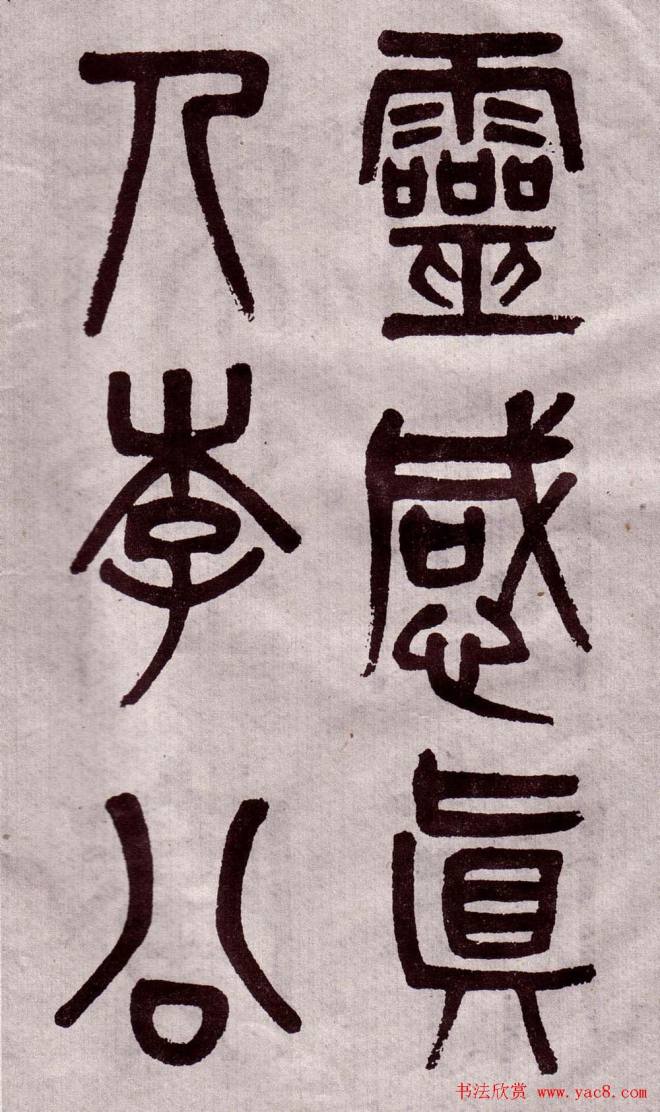 靈感真
人李公
书法欣赏 www.yac8.com